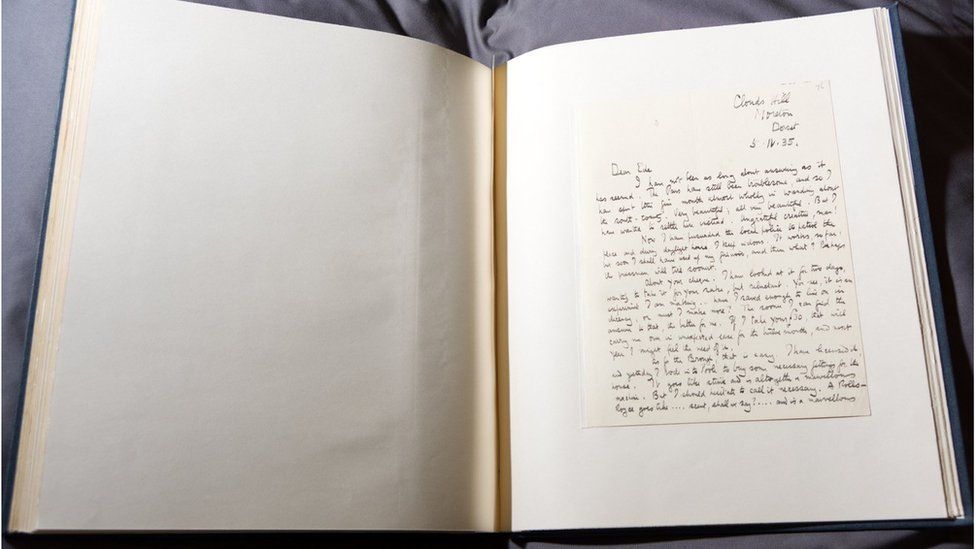 Clouds Hill
Moreton
Dorset
5 IV 35.
Dear Ede
I have not been as long about answering as it
has seemed. The Press have still been troublesome, and so I
have spent this fine month almost wholly in wandering about
the south-country. Very beautiful, all very beautiful. But I
have wanted to settle here instead. Ungrateful creature, man!
Now I have persuaded the local police to patrol the
place and during daylight hours I keep indoors. It works, so far,
but soon I shall have used up my firewood, and then what? Perhaps
the pressmen will tire sooner.
About your cheque. I have looked at it for two days,
wanting to take it for your sake, but reluctant. You see, it is an
experiment I am making... have I saved enough to live on in
decency, or must I make more? The sooner I can find the
answer to that, the better for me. If I take your £30, that will
carry me over in unexpected ease for the twelve months, and next
year I might feel the need of it.
As for the Brough, that is easy. I have licensed it,
and yesterday I rode in to Poole to buy some necessary fittings for the
house. It goes like stink and is altogether a marvellous
machine. But I should hesitate to call it necessary. A Rolls-
Royce goes like .... scent, shall we say? .... and is a marvellous